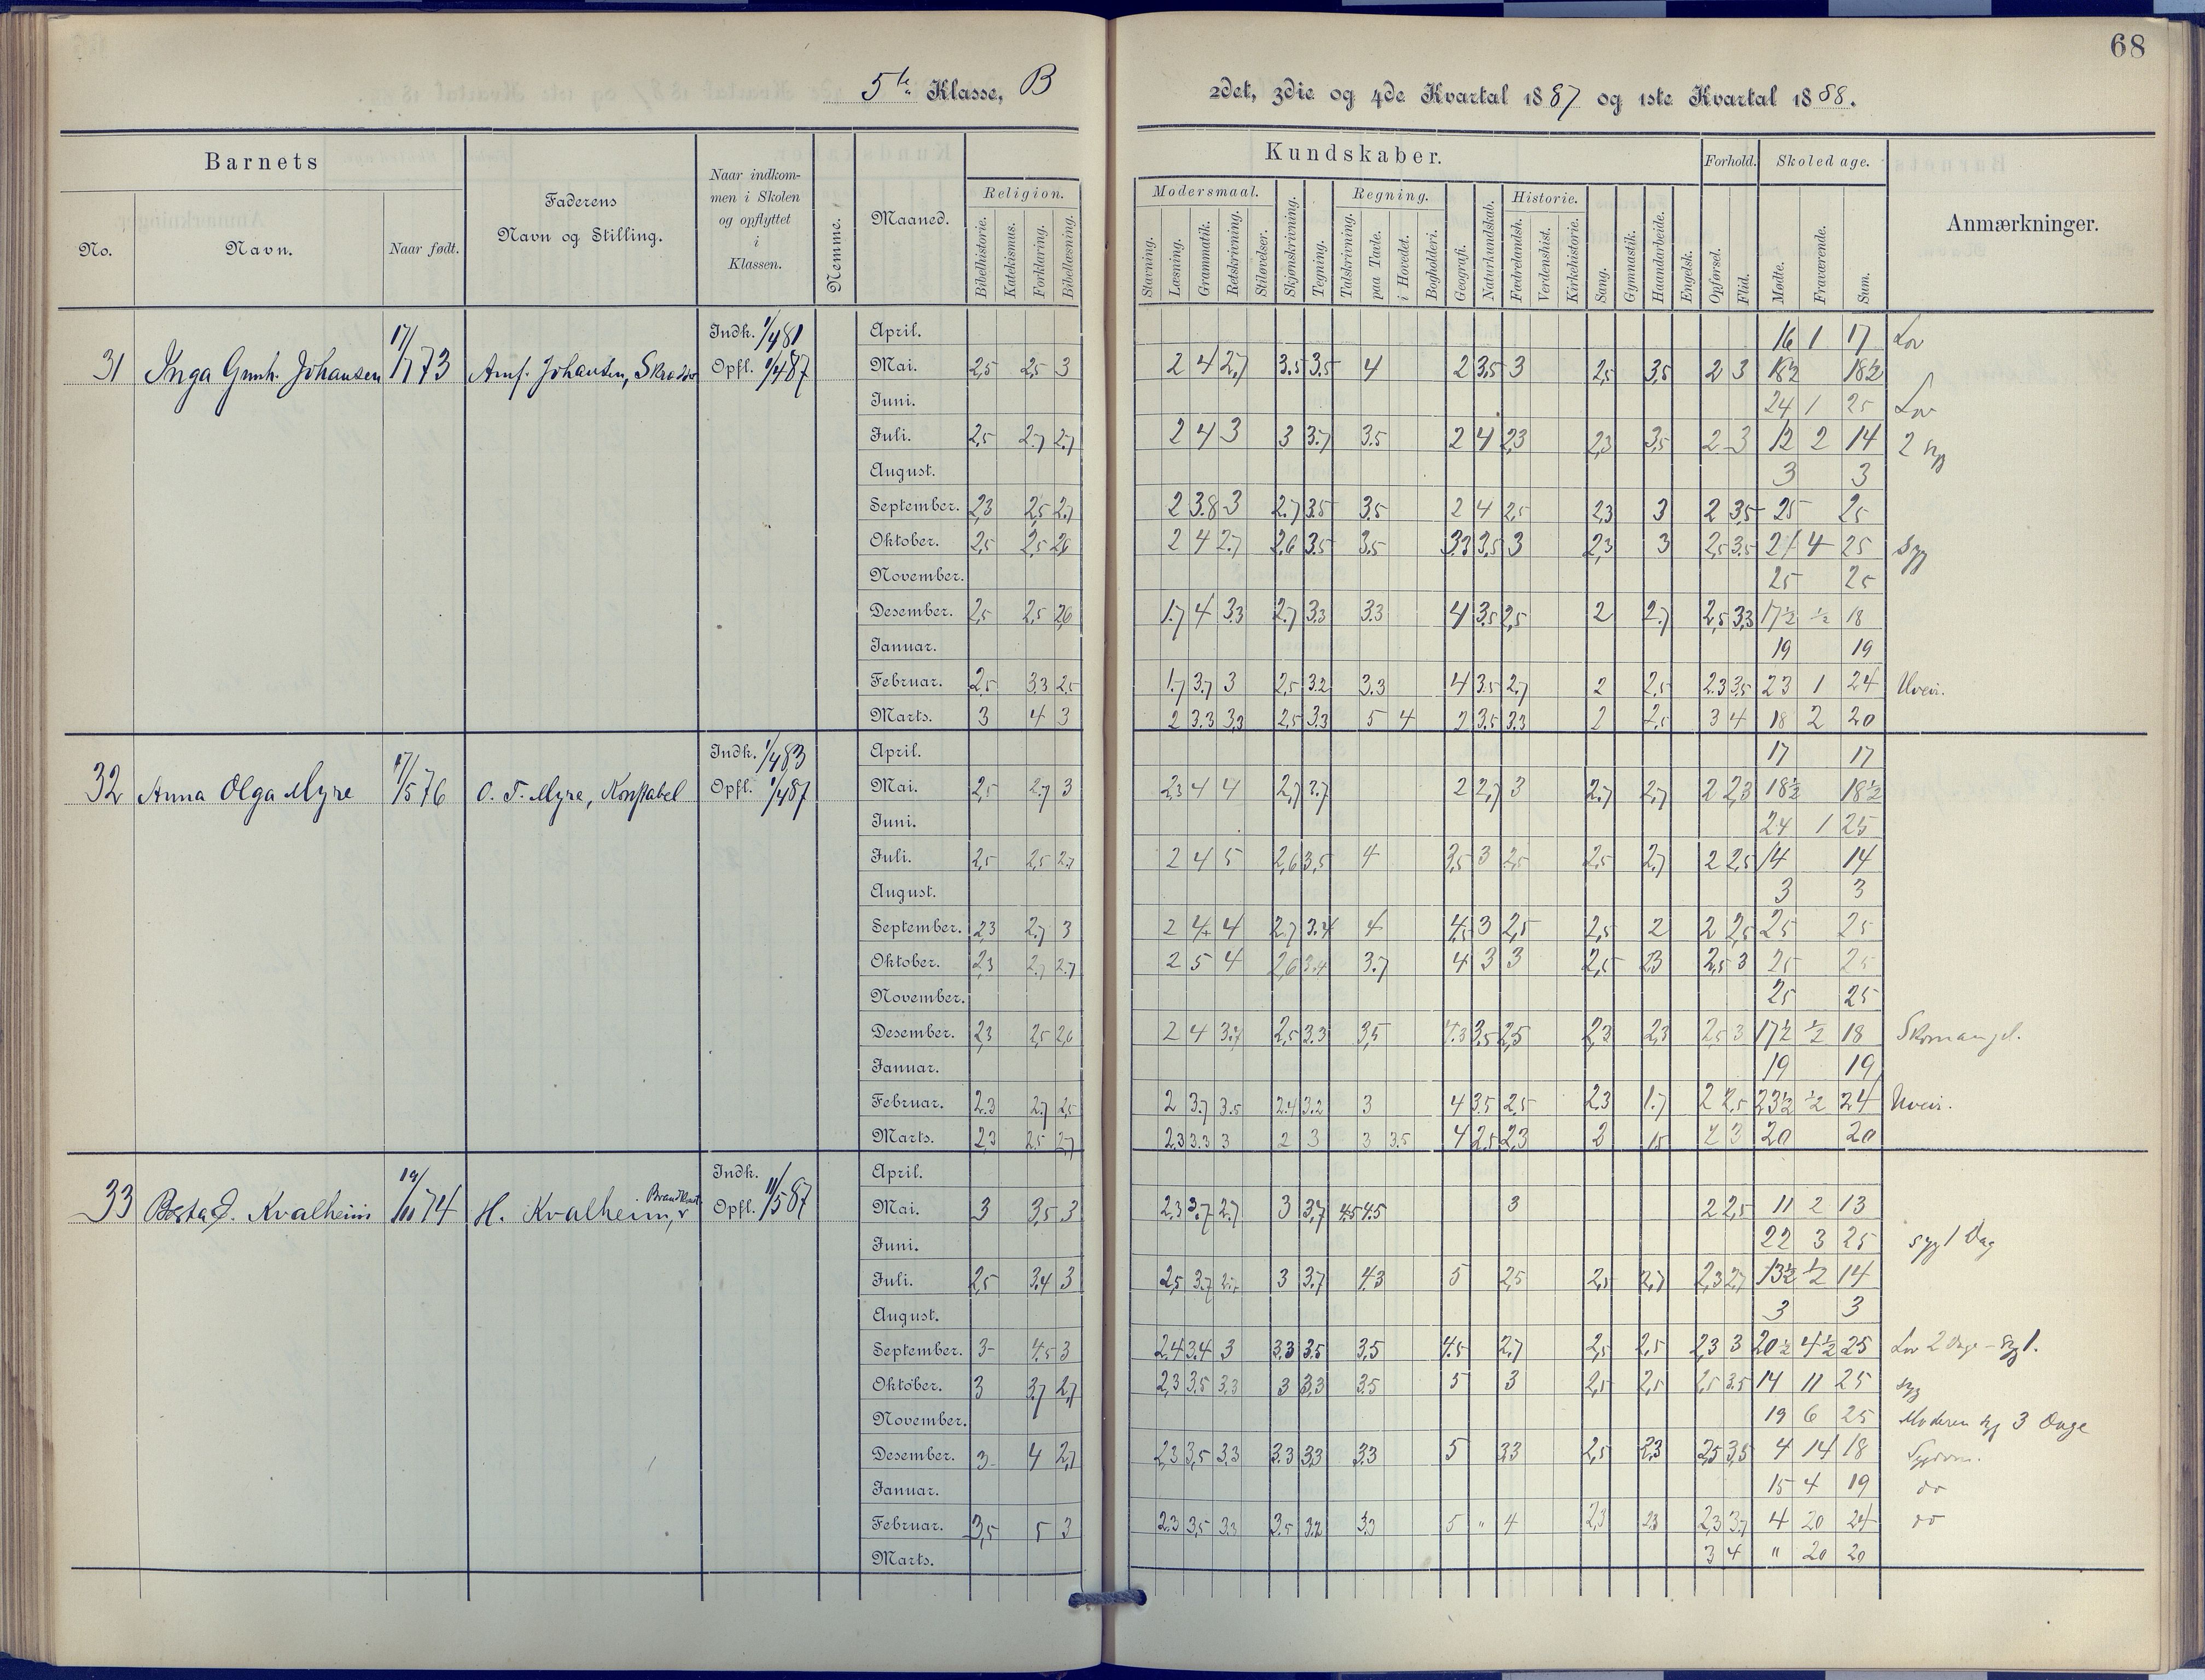 68
5te Klasse, B
2det, 3die og 4de Kvartal 1887 og 1ste Kvartal 1888.
Barnets
No.
Navn.
Naar født.
Faderens
Navn og Stilling.
Naar indkom-
men i Skolen
og opflyttet
i
Klassen.
Nemme.
Maaned.
Religion.
Bibelhistorie.
Katekismus.
Forklaring.
Bibellæsning.
Kundskaber.
Modersmaal.
Stavning.
Læsning.
Grammatik.
Retskrivning.
Stiløvelser.
Skjønskrivning.
Tegning.
Regning.
Talskrivning.
paa Tavle.
i Hovedet.
Bogholderi.
Geografi.
Naturkundskab.
Historie.
Fædrelandsh.
Verdenshist.
Kirkehistorie.
Sang.
Gymnastik.
Haandarbeide.
Engelsk.
Forhold.
Opførsel.
Flid.
Skoledage.
Mødte.
Fraværende.
Sum.
Anmærkninger.
31 Inga Gunh. Johansen 17/1 73 Johansen, Indk. 1/4 81 Opfl. 1/4 87
April. 16 1 17 Lov
Mai. 2,5 2,5 3 2 4 2,7 3.5 3.5 4 2 3.5 3 2,5 3,5 2 3 18½ 18½
Juni. 24 1 25 Lov
Juli. 2,5 2.7 2.7 2 4 3 3 3.7 3.5 2 4 2,3 2,3 3,5 2 3 12 2 14 2 syg
August. 3 3
September. 2,3 2,5 2.7 2 3.8 3 2.7 3.5 3.5 2 4 2,5 2,3 3 2 3,5 25 25
Oktober. 2,5 2,5 2,6 2 4 2.7 2.6 3.5 3.5 3.3 3,5 3 2,3 3 2,5 3.5 21 4 25 syg
November. 25 25
Desember. 2,5 2,5 2,6 1.7 4 3.3 2.7 3.3 3.3 4 3.5 2,5 2 2.7 2,5 3,3 17½ ½ 18
Januar. 19 19
Februar. 2,5 3.3 2.5 1.7 3.7 3 2,5 3.2 3.3 4 3.5 2.7 2 2,5 2.3 3.5 23 1 24 Uveir.
Marts. 3 4 3 2 3.3 3,3 2,5 3.3 5 4 2 3.5 3.3 2 2,5 3 4 18 2 20
32 Anna Olga Myre 17/5 76 O. T. Myre, Konstabel Indk. 1/4 83 Opfl. 1/4 87
April. 17 17
Mai. 2,5 2.7 3 2,3 4 4 2,7 3.7 2 2,7 3 2.7 2,7 2 2,3 18½ 18½
Juni. 24 1 25
Juli. 2,5 2,5 2.7 2 4 5 2,6 3,5 4 3,5 3 2,5 2,5 2,7 2 2,5 14 14
August. 3 3
September. 2,3 2.7 3 2 4 4 2.7 3.4 4 4,5 3 2,5 2,5 2 2 2,5 25 25
Oktober. 2,3 2.7 2.7 2 5 4 2,6 3.4 3.7 4 3 3 2,5 2,3 2,5 3 25 25
November. 25 25
Desember. 2,3 2,5 2,6 2 4 3.7 2,5 3.3 3,5 4.3 3.5 2,5 2,3 2,3 2,5 3 17½ ½ 18 Skomangel.
Januar. 19 19
Februar. 2.3 2.7 2,5 2 3.7 3.5 2.4 3.2 3 4 3.5 2,5 2.3 1.7 2 2,5 23½ ½ 24 Uveir.
Marts. 2,3 2.5 2,7 2,3 3.3 3 2 3 3 3.5 4 2.5 2,3 2 1,5 2 3 20 20
33 Kvalheim 19/10 74 H. Kvalheim, Indk. Opfl. 11/5 87
April.
Mai. 3 3,5 3 2.3 3.7 2.7 3 3,7 4.5 4.5 3 2 2,5 11 2 13
Juni. 22 3 25 syg 1 Dag
Juli. 2,5 3.4 3 2,5 3.7 3 3.7 4.3 5 2,5 2,5 2,7 2,3 2,7 13½ ½ 14
August. 3 3
September. 3 4.5 3 2.4 3.4 3 3.3 3.5 3,5 4.5 2.7 2,5 2,5 2,3 3 20½ 4½ 25 Lov 2 Dage - syg 1.
Oktober. 3 3.7 2,7 2,3 3.5 3.3 3 3.3 3.5 5 3 2,5 2,5 2,5 3.5 14 11 25 syg
November. 19 6 25 Moderen syg 3 Dage
Desember. 3 4 2,7 2,3 3,5 3.3 3.3 3.3 3.3 5 3.3 2,5 2,3 2,5 3,5 4 14 18 Sygdom.
Januar. 15 4 19 do
Februar. 3,5 5 3 2.3 3,5 3.3 3.5 3.2 3.3 5 " 4 2,3 2.3 2,3 3.7 4 20 24 do
Marts. 3 4 " 20 20